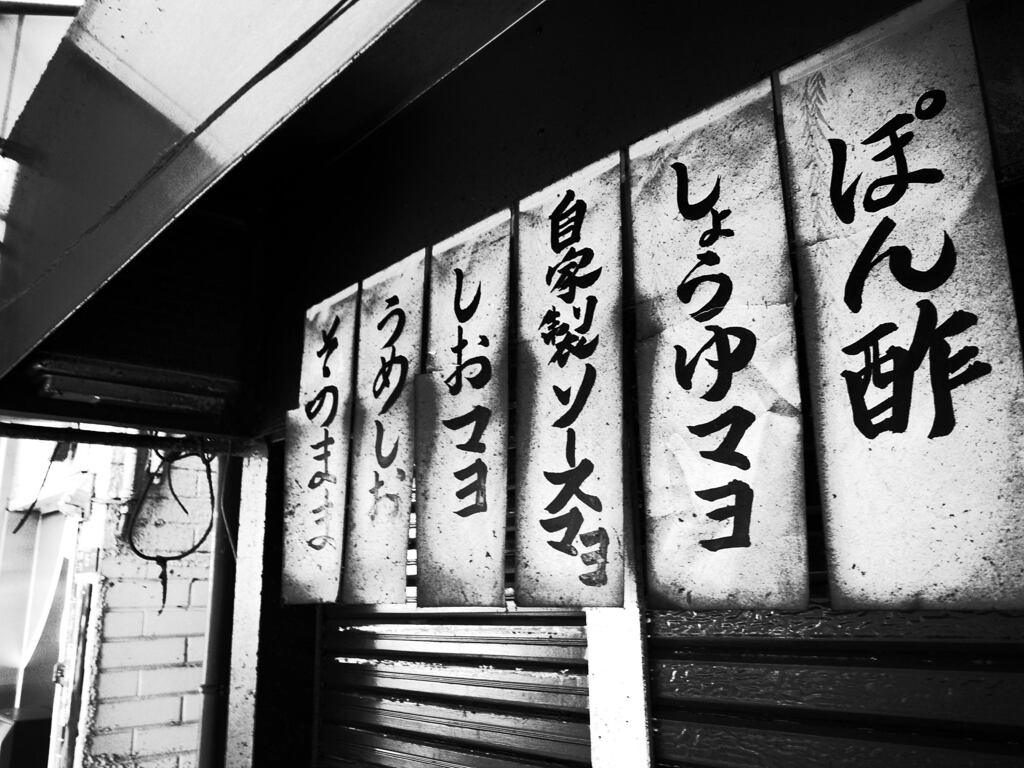 ぽん酢
しょうゆマヨ
自家製ソースマヨ
しおマヨ
うめしお
そのまま